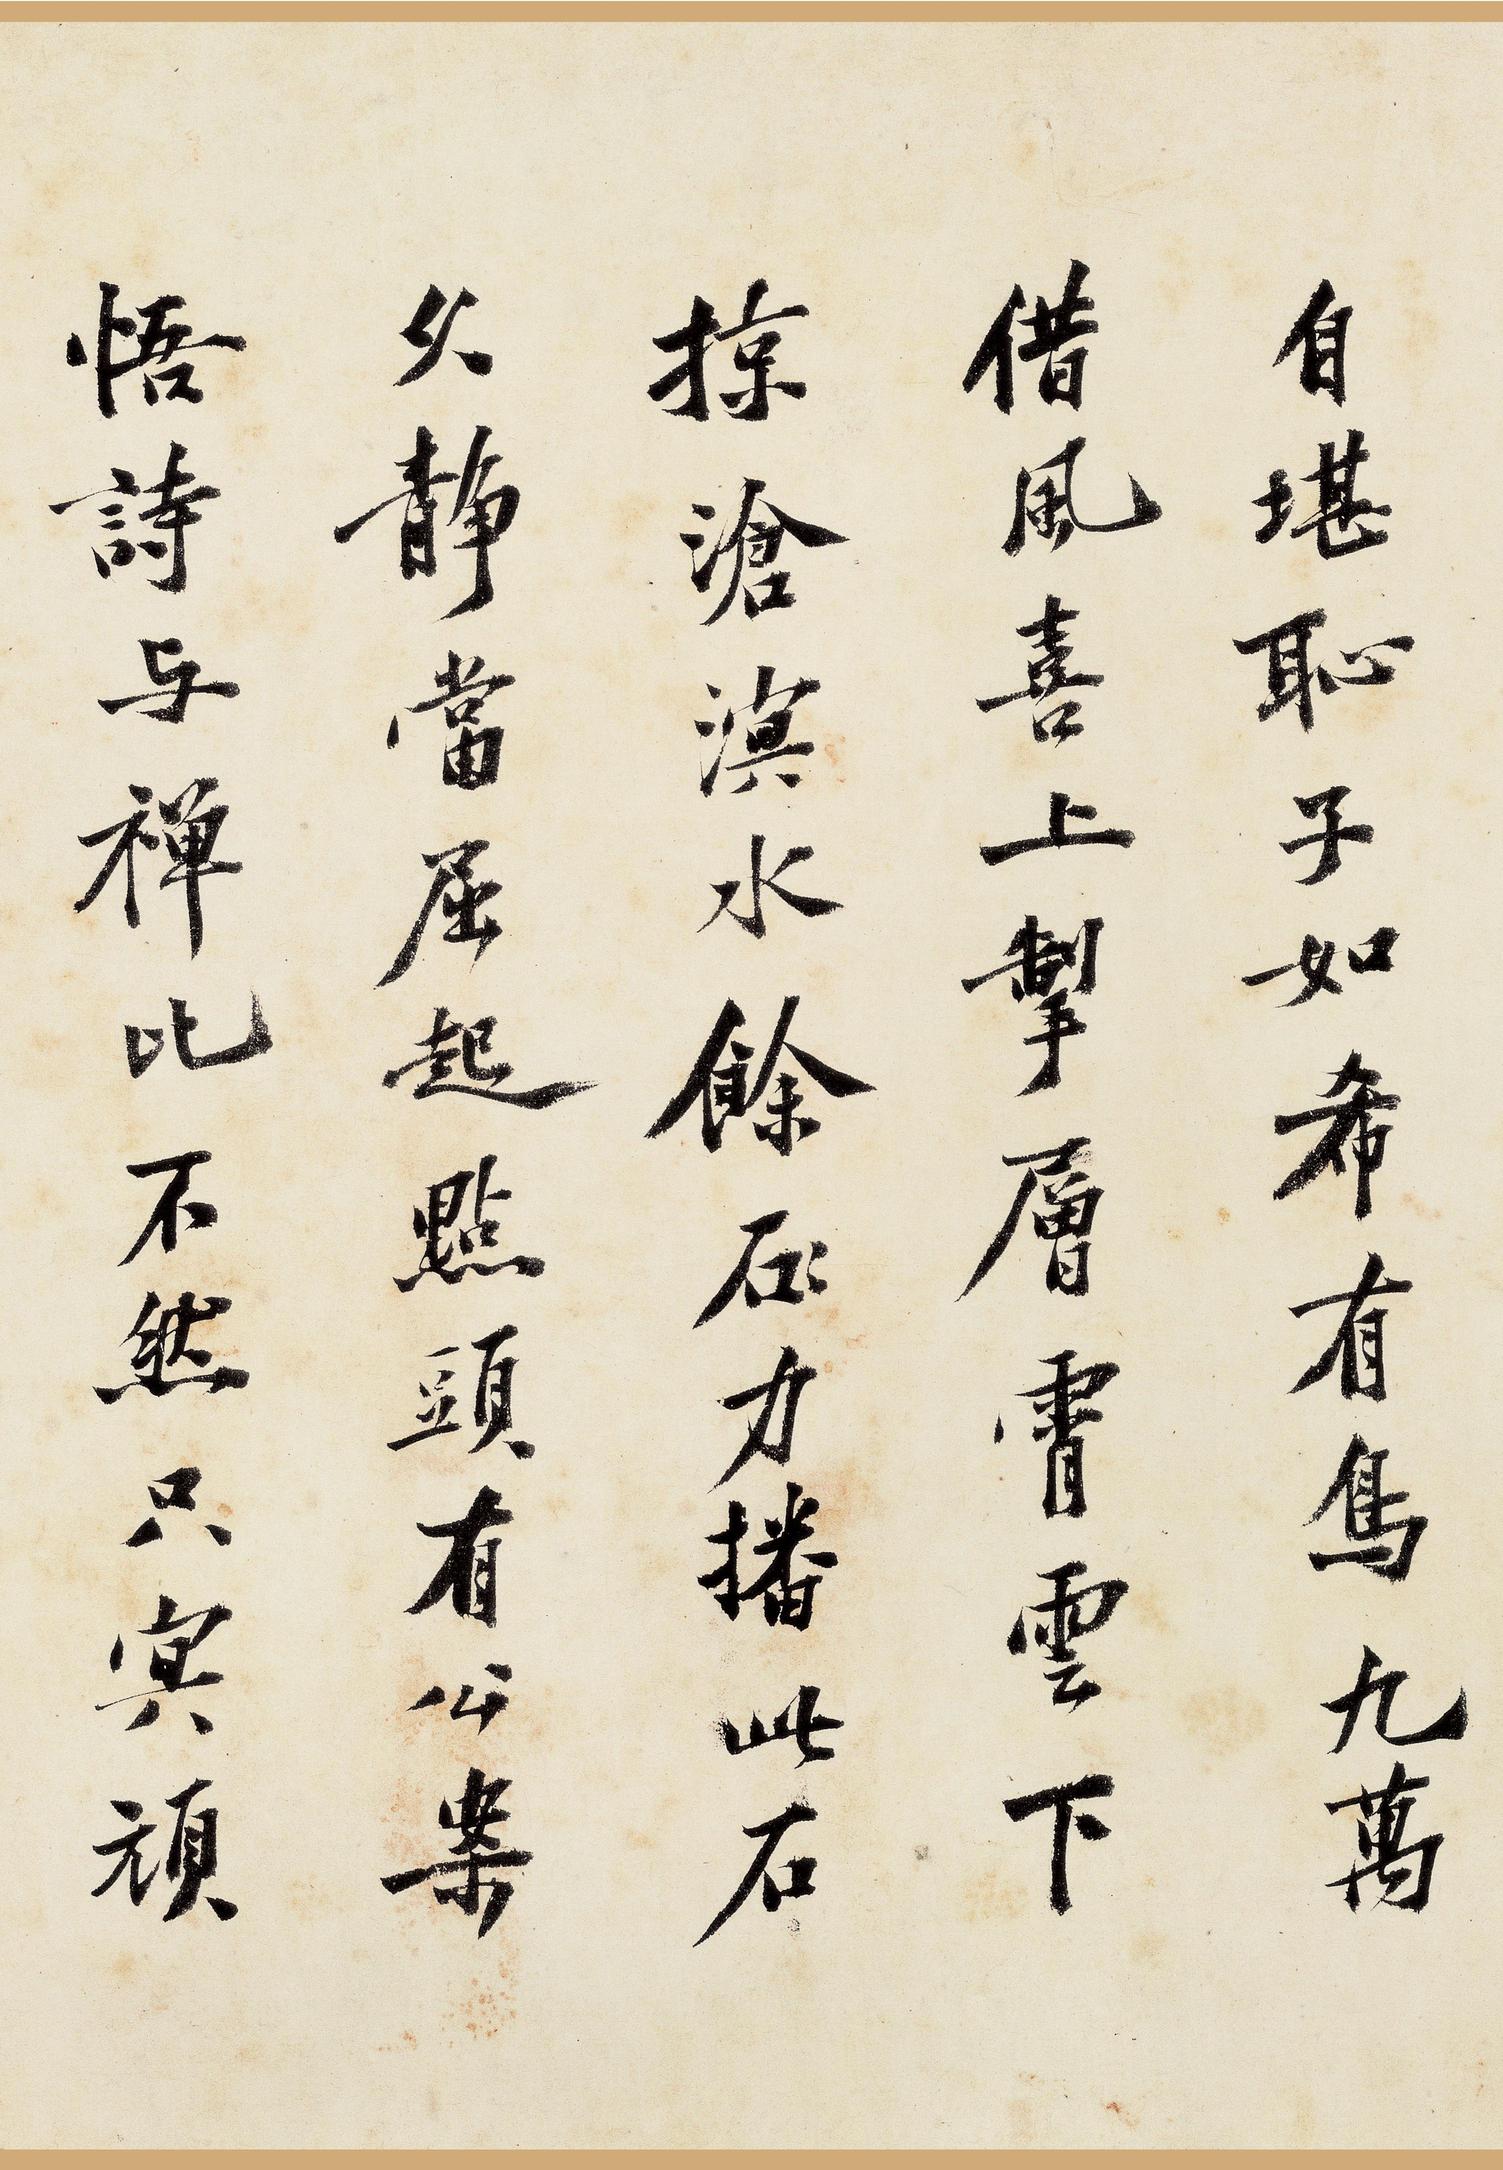 自堪恥子如希有鳥九萬
借風喜上掣層霄雲下
掠滄溟水餘砅力播此石
久靜當屈起點頭有公案
悟詩与禅比不然只冥頑